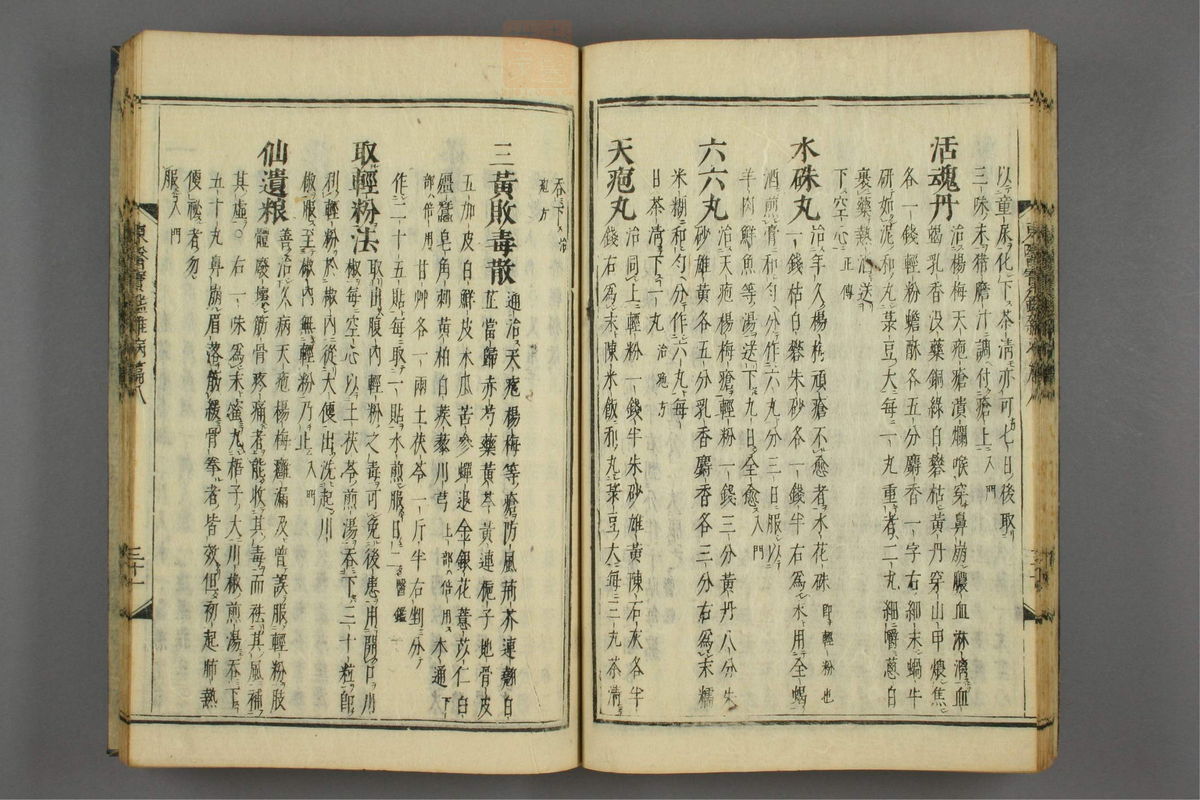 以童尿化下茶清亦可七日後取
三味末猪膽汁調付瘡上入門
活魂丹 治楊梅天疱瘡潰爛喉穿鼻崩膿血淋漓血
竭乳香没藥銅綠白礬枯黄丹穿山甲煨焦
各一錢輕粉蟾酥各五分麝香一字右細末蝸牛
研如泥和丸菉豆大每一丸重者二丸細嚼葱白
裹藥熱酒送下空心正傳
水硃丸 治年久楊梅頑瘡不愈者水花硃即輕粉也
一錢枯白礬朱砂各一錢半右爲末用全蝎
酒煎膏和勻分作六丸分三日服以
羊肉鮮魚等湯送下九日全愈入門
六六丸 治天疱楊梅瘡輕粉一錢三分黄丹八分朱
砂雄黄各五分乳香麝香各三分右爲末糯
米糊和勻分作六丸每
日茶清下一丸 治疱方
天疱丸 治同上輕粉一錢半朱砂雄黄陳石灰各半
錢右爲末陳米飯和丸菉豆大每三丸茶清
吞下治
疱方
三黄敗毒散 通治天疱楊梅等瘡防風荊芥連翹白
芷當歸赤芍藥黄芩黄連梔子地骨皮
五加皮白鮮皮木瓜苦參蟬退金銀花薏苡仁白
殭蠶皂角刺黄柏白蒺藜川芎上部倍用木通下
部倍用甘艸各一兩土茯苓一斤半右剉分
作二十五貼每取一貼水煎服日二醫鑑
取輕粉法 取出腹内輕粉之毒可免後患用開口川
椒每空心以土茯苓煎湯吞下三十粒即
利輕粉於椒内從大便出洗起川
椒服至椒内無輕粉乃止入門
仙遺粮 善治久病天疱楊梅癰漏及曾誤服輕粉肢
體廢壞筋骨疼痛者能收其毒而祛其風補
其虛右一味爲末蜜丸梧子大川椒煎湯吞下
五十丸鼻崩眉落筋緩骨拳者皆效但初起肺熱
便秘者勿
服入門
東醫寶鑑雜病篇八
三十一